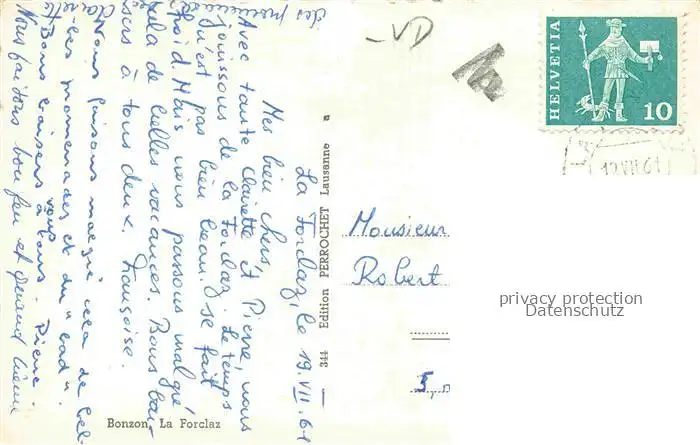 La Forclaz, le 19.VII.61
Mes bien chers,
Avec tante Clairette et Pierre, nous
jouissons de la Forclaz. Le temps
n'est pas bien beau. Il se fait
froid. Mais nous passons malgré
cela de belles vacances. Bons bai-
sers à tous deux. Françoise.
Nous faisons malgré cela de bel-
les promenades et du "cad".
Bons baisers à vous
tous. Pierre.
Nous faisons bon feu et quand même
des promenades
Clairette
344 Edition PERROCHET Lausanne
Bonzon, La Forclaz
VD
HELVETIA
10
12 VII 61
Monsieur
Robert
5,
privacy protection
Datenschutz